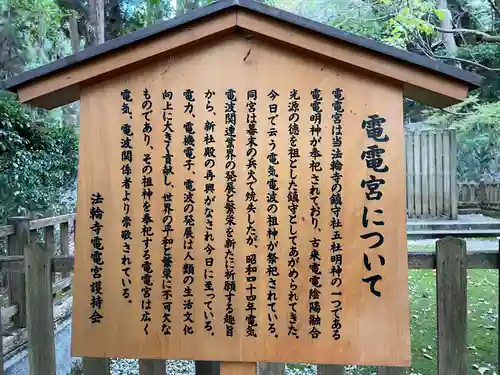 電電宮について
電電宮は当法輪寺の鎮守社五社明神の一つである
電電明神が奉祀されており、古来電電陰陽融合
光源の徳を祖とした鎮守としてあがめられてきた。
今日で云う電気電波の祖神が奉祀されている。
同宮は幕末の兵火で焼失したが、昭和四十四年電気
電波関連業界の発展と繁栄を新たに祈願する趣旨
から、新社殿の再興がなされ今日に至っている。
電力、電機電子、電波の発展は人類の生活文化
向上に大きく貢献し、世界の平和と繁栄に不可欠な
ものであり、その祖神を奉祀する電電宮は広く
電気、電波関係者より崇敬されている。
法輪寺電電宮護持会